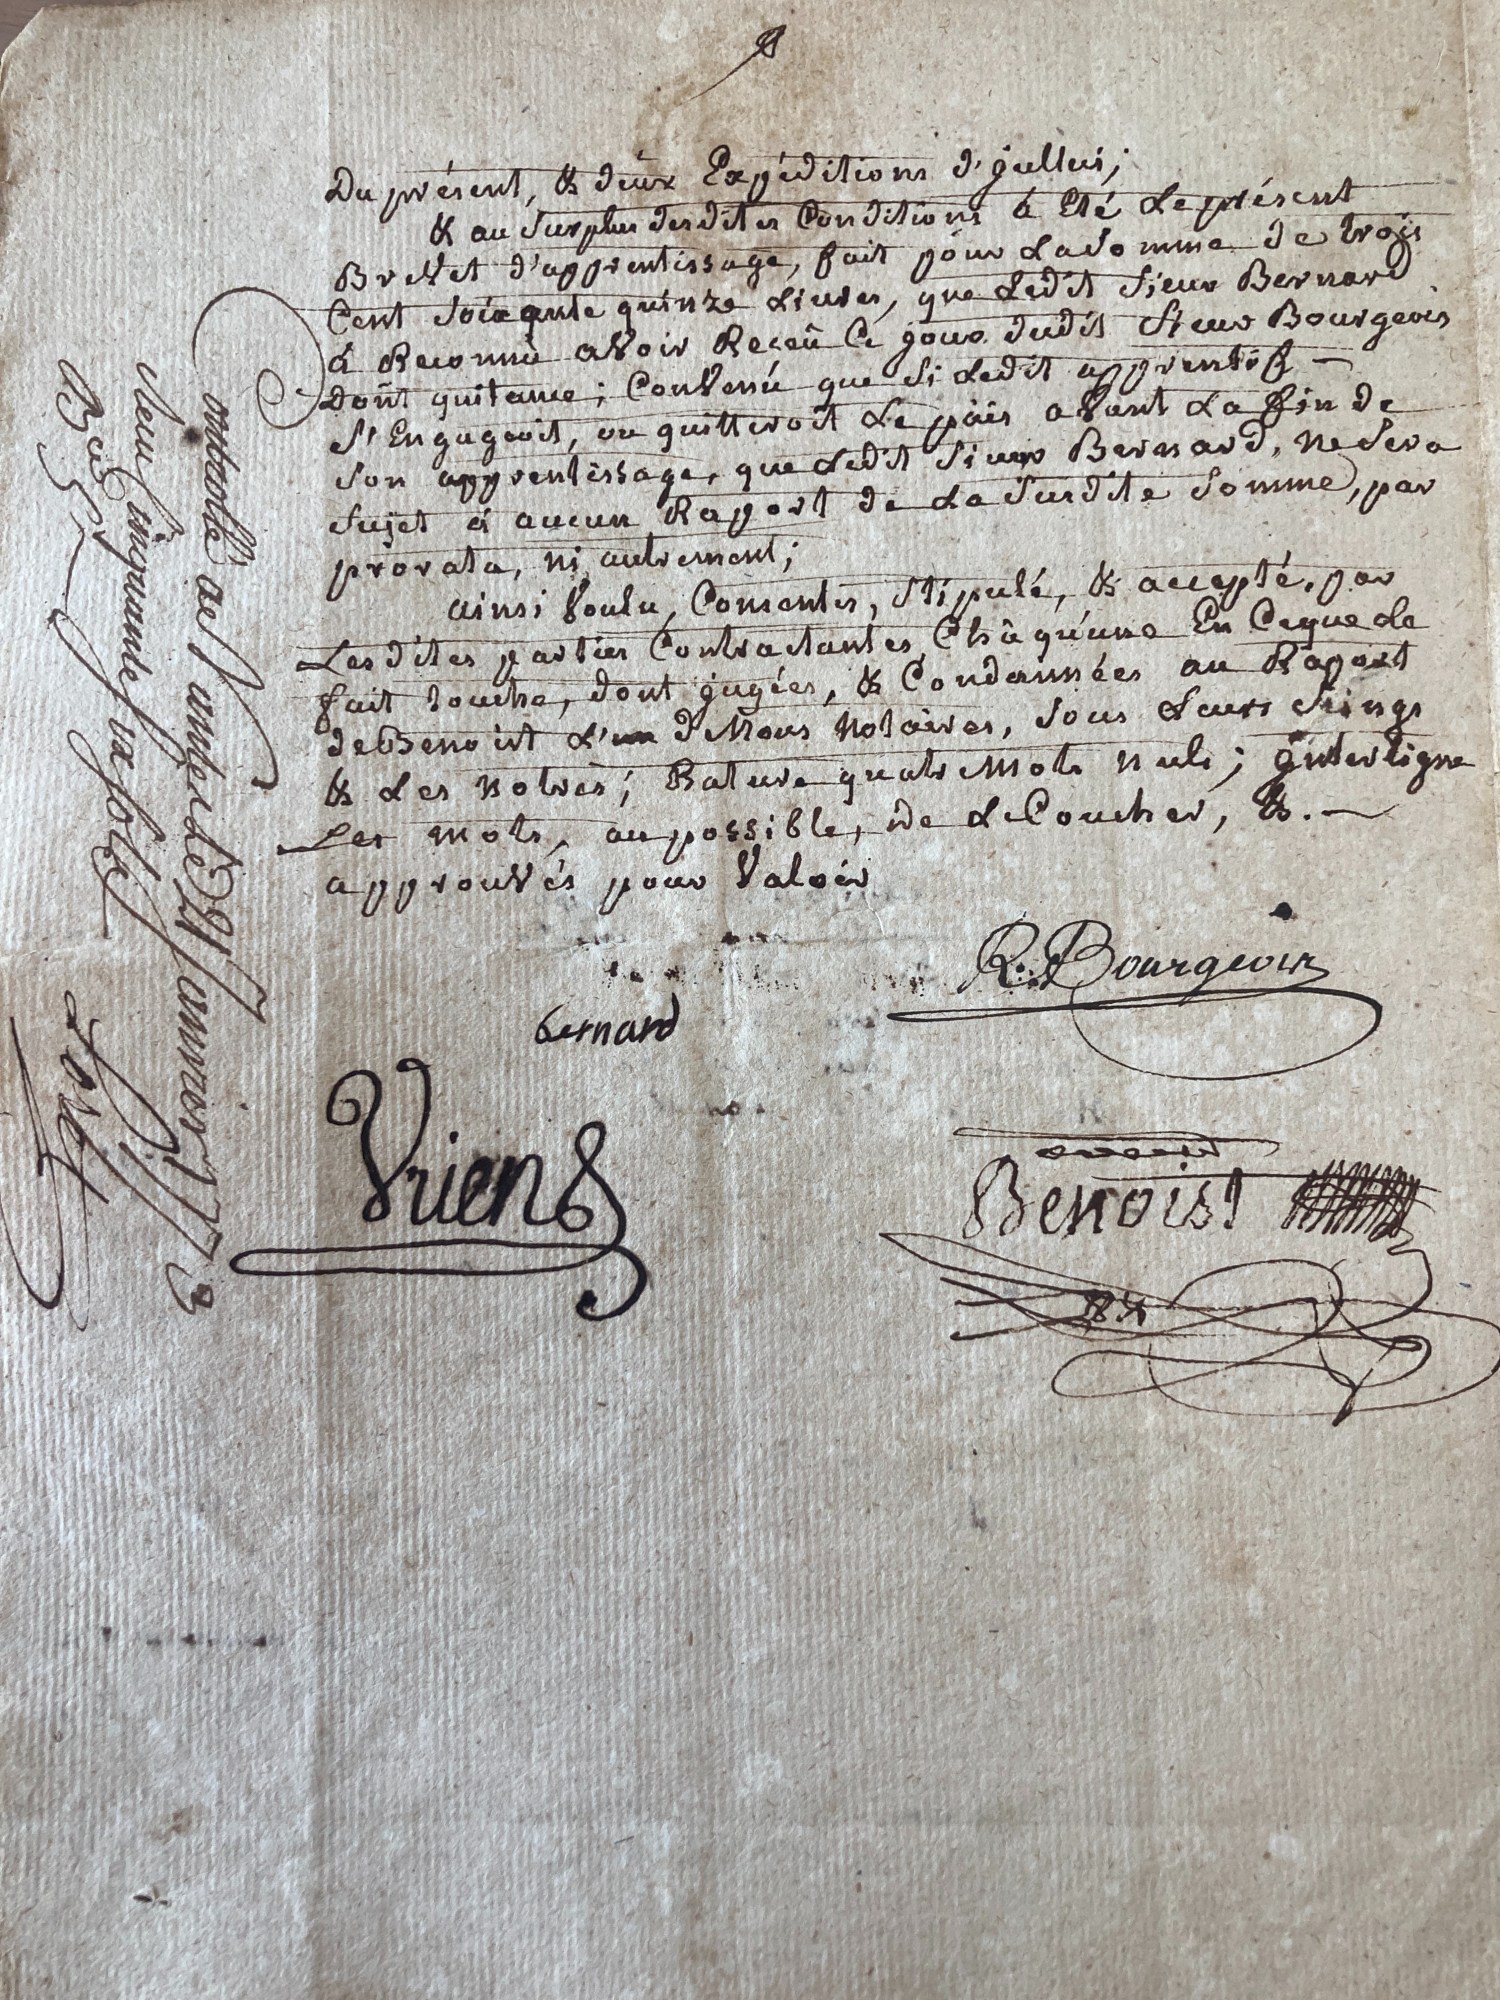 Du présent, & deux Expéditions d'ycelluy;
& au surplus desdites Conditions à Eté Le présent
Brevet d'apprentissage, fait pour La Somme de trois
Cent soixante quinze Livres, que Ledit Sieur Bernard
à Reconnu avoir Receu Ce jour dudit Sieur Bourgeois
dont quitance; Convenu que si Ledit apprentif —
s'Engageoit, ou quitteroit Le païs avant La fin de
son apprentissage, que Ledit Sieur Bernard, ne sera
sujet à aucun Raport de La susdite Somme, par
prorata, ni autrement;
ainsi Voulu, Consentis, stipulé, & accepté, par
Lesdites parties Contractantes, Châqu'une En Ceque Le
fait touche, dont jugées, & Condannées au Raport
de Benoist L'un de Nous Notaires, sous Leurs seings
& Les Notres; Rature quatre Mots nuls; ynterligne
Les Mots, au possible, de Le Coucher, &. —
approuvés pour Valoir
R. Bourgeois
bernard
Vriens
Benoist
Controllé a
le 21 Janvier 1773
Reçu cinquante six sols